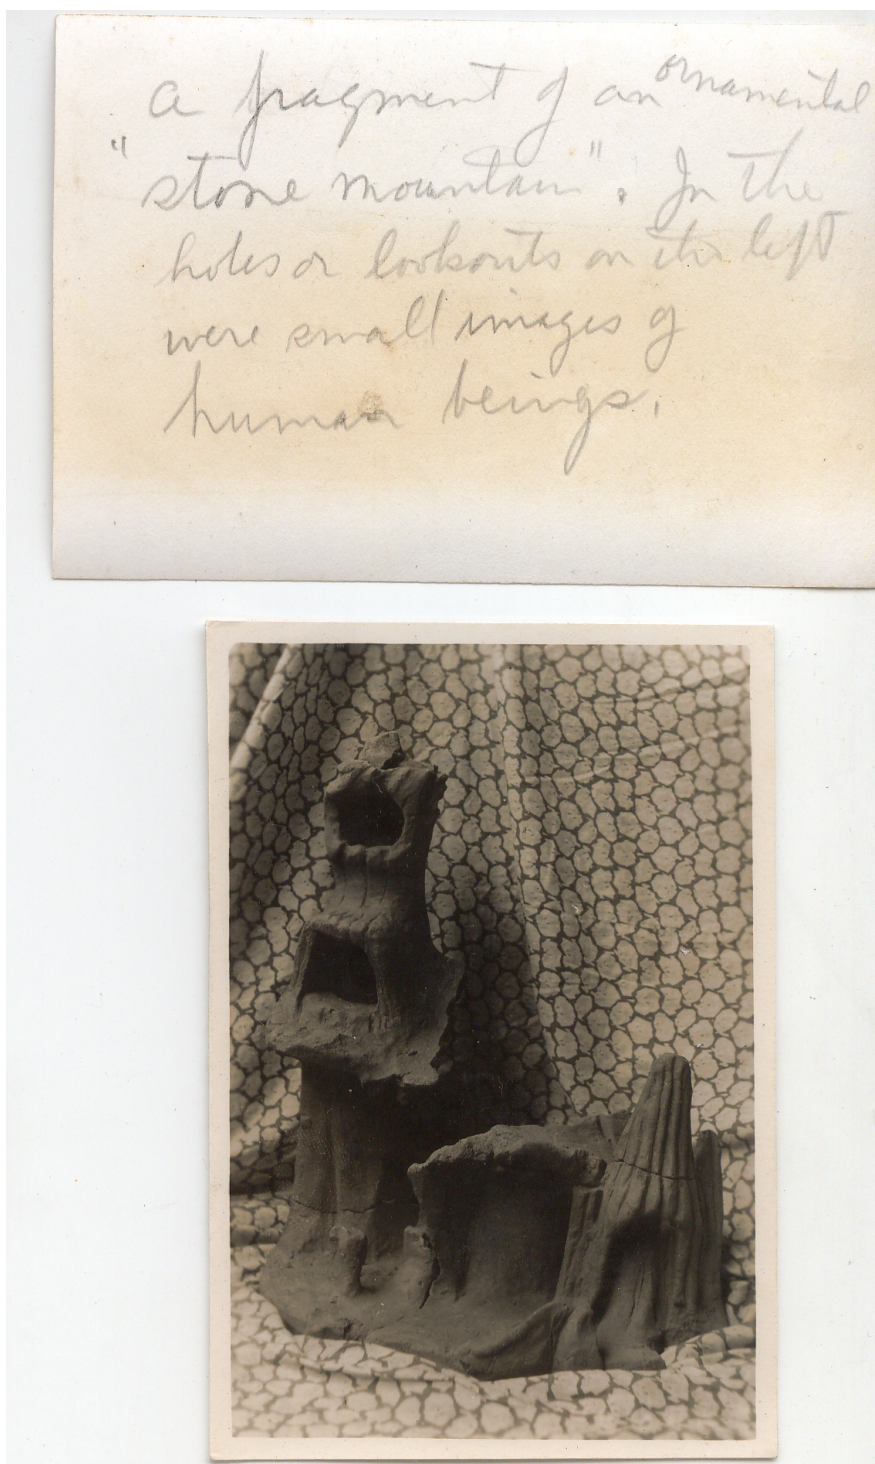 a fragment of an ornamental
"stone mountain". In the
holes or lookouts on the left
were small images of
human beings.